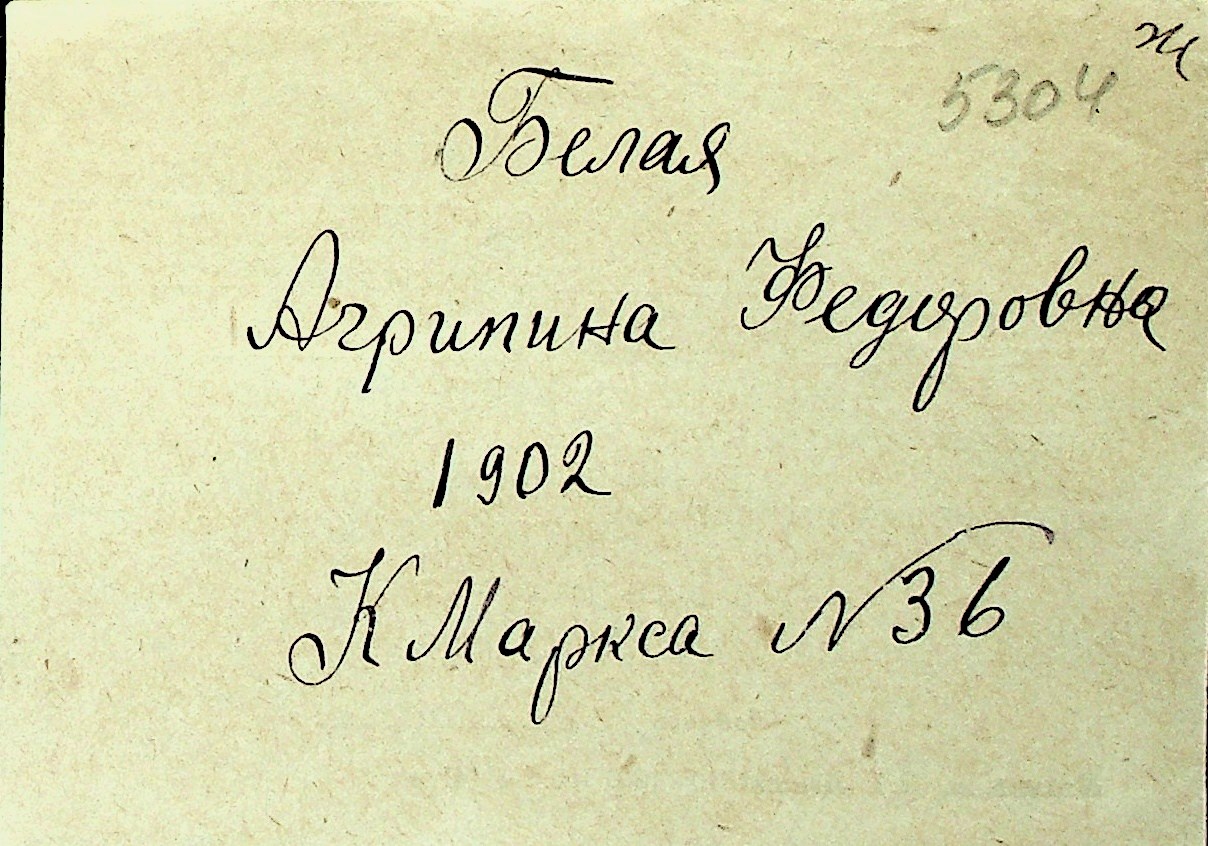 ж
5304
Белая
Агрипина Федоровна
1902
К Маркса N 36